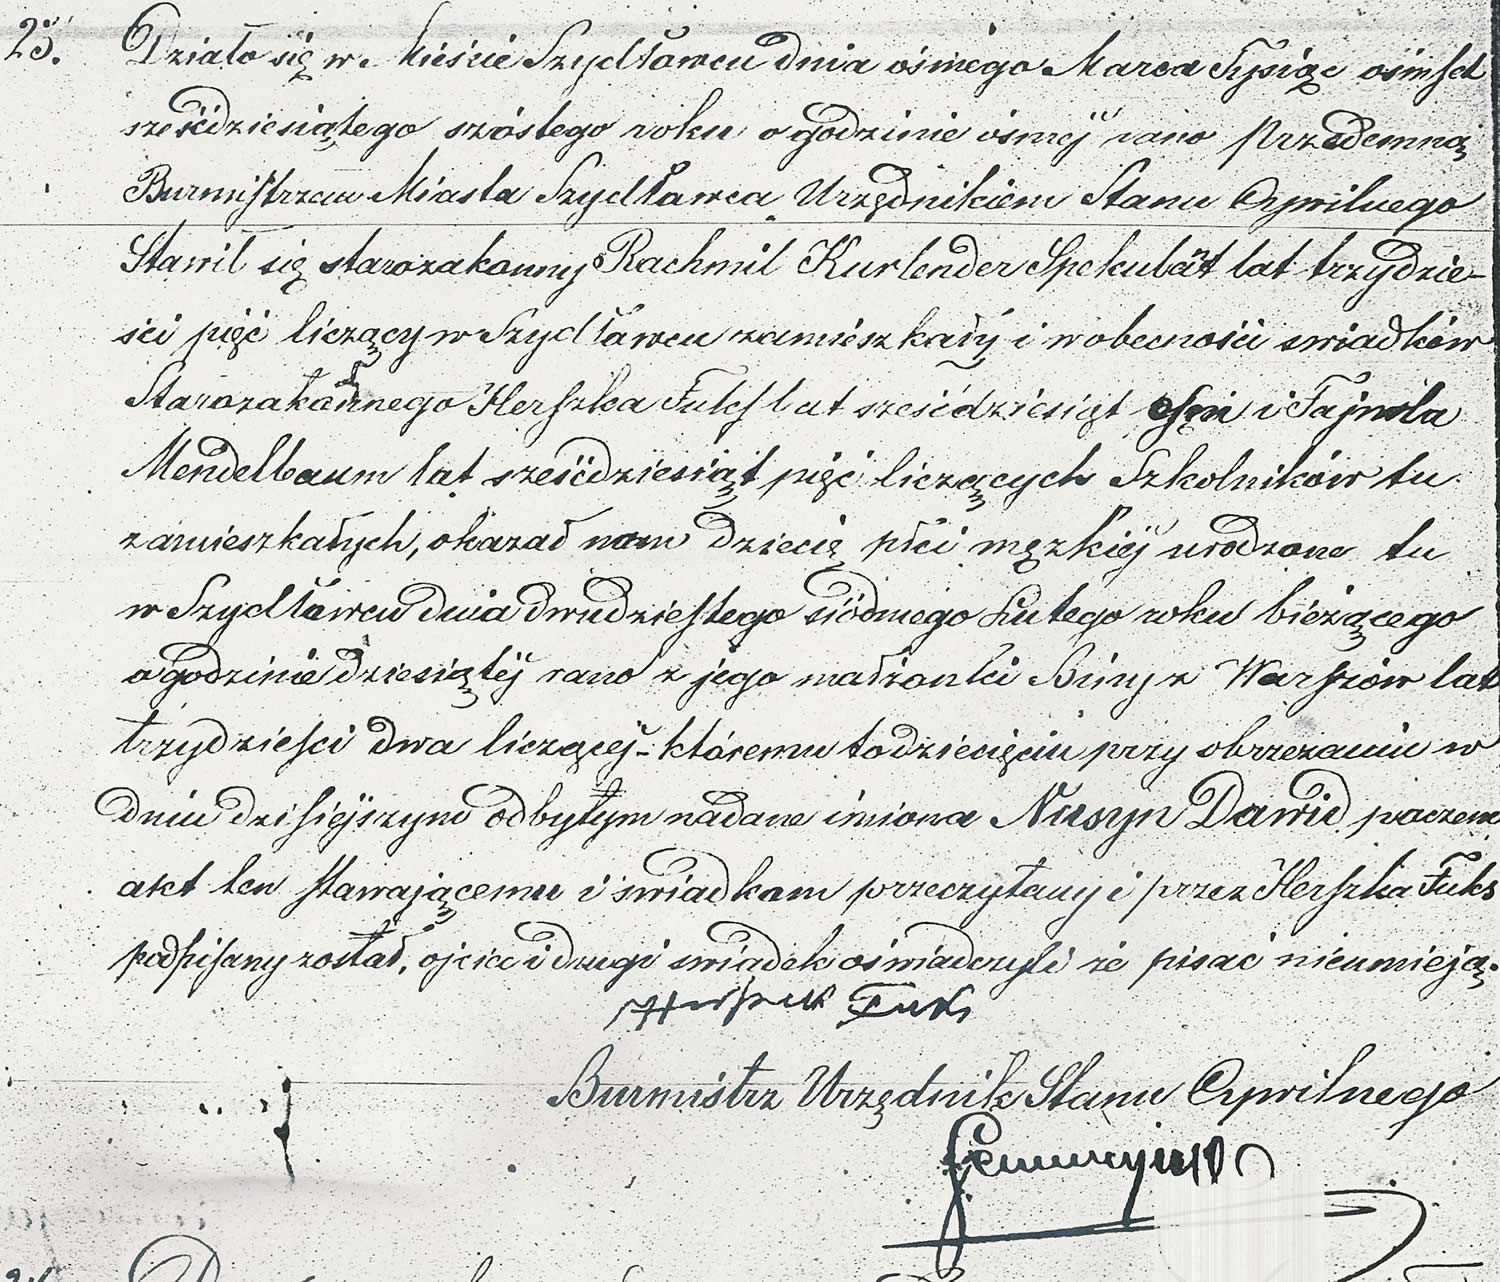 25. Działo się w Mieście Szydłowcu dnia ósmego Marca Tysiąc ośmset
sześćdziesiątego szóstego roku o godzinie ósmej rano przedemną
Burmistrzem Miasta Szydłowca Urzędnikiem Stanu Cywilnego
Stawił się starozakonny Rachmil Kurlender Spekulant lat trzydzie-
ści pięć liczący w Szydłowcu zamieszkały i w obecności świadków
Starozakonnego Herszka Fuks lat sześćdziesiąt i Fajwla
Mendelbaum lat sześćdziesiąt pięć liczących Szkolników tu
zamieszkałych, okazał nam dziecię płci męzkiéj urodzone tu
w Szydłowcu dnia dwudziestego siódmego Lutego roku bieżącego
o godzinie dziesiątéj rano z jego małżonki Biny z Warszów lat
trzydzieści dwa liczącéj - któremu to dziecięciu przy obrzezaniu w
dniu dzisiéjszym odbytym nadane imiona Nusyn Dawid poczem
akt ten stawającemu i świadkom przeczytany i przez Herszka Fuks
podpisany został, ojciec i drugi świadek oświadczyli że pisać nieumieją.
Herszek Fuks
Burmistrz Urzędnik Stanu Cywilnego